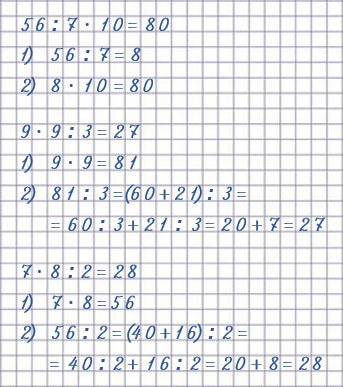 56 : 7 · 10 = 80
1) 56 : 7 = 8
2) 8 · 10 = 80
9 · 9 : 3 = 27
1) 9 · 9 = 81
2) 81 : 3 = (60 + 21) : 3 =
= 60 : 3 + 21 : 3 = 20 + 7 = 27
7 · 8 : 2 = 28
1) 7 · 8 = 56
2) 56 : 2 = (40 + 16) : 2 =
= 40 : 2 + 16 : 2 = 20 + 8 = 28